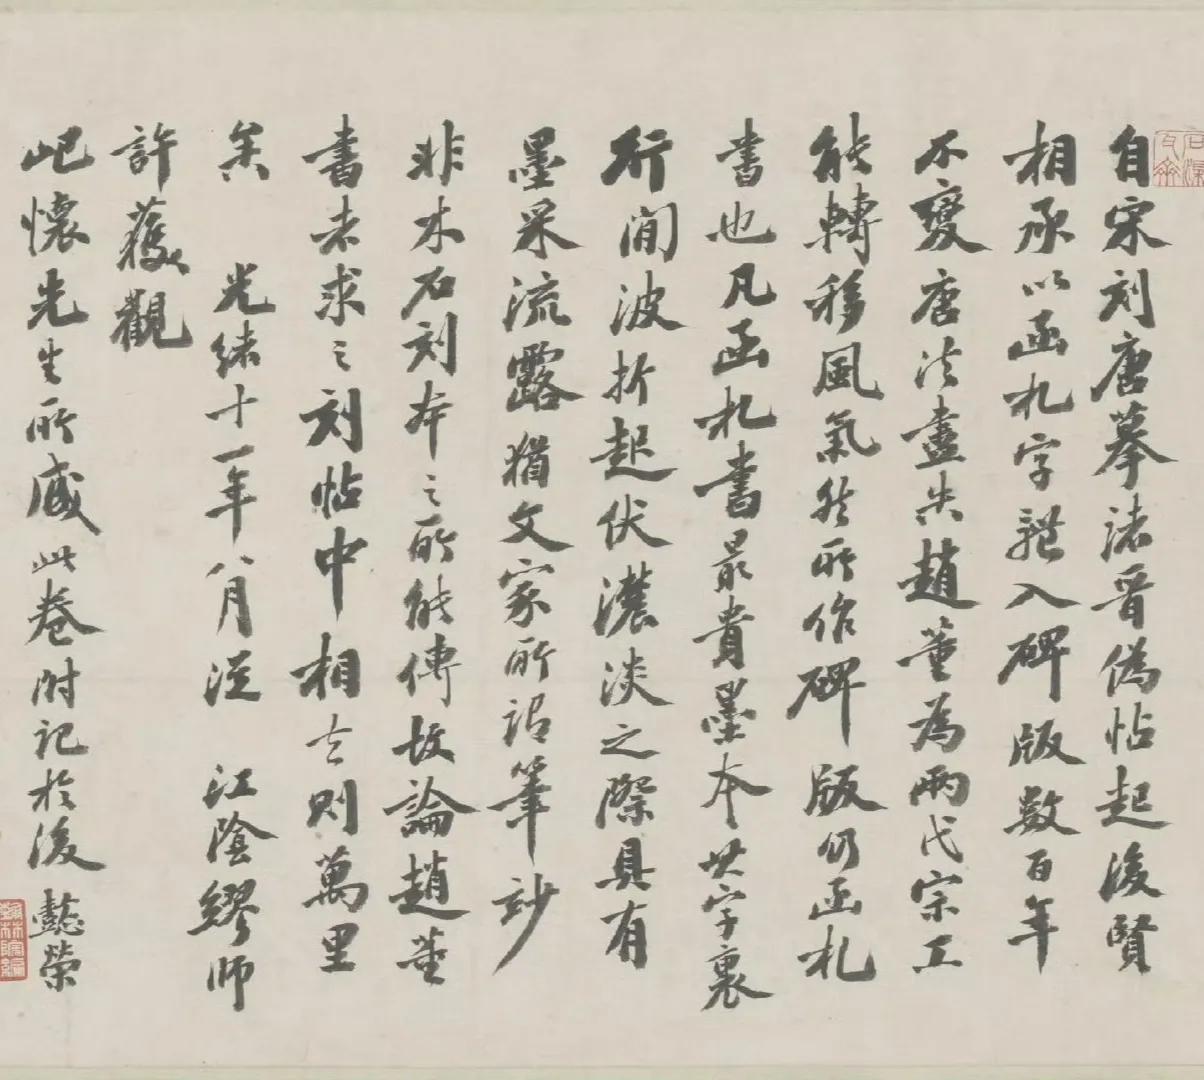 自宋刻唐摹諸晉偽帖起後賢
相承以函札字體入碑版數百年
不變唐法盡失趙董為兩代宗工
能轉移風氣然所作碑版仍函札
書也凡函札書最貴墨本其字裏
行間波折起伏濃淡之際具有
墨采流露猶文家所謂筆妙
非木石刻本之所能傳故論趙董
書者求之刻帖中相去則萬里
矣 光緒十一年八月從 江陰繆師
許獲觀
屺懷先生所藏此卷附記於後 懿榮